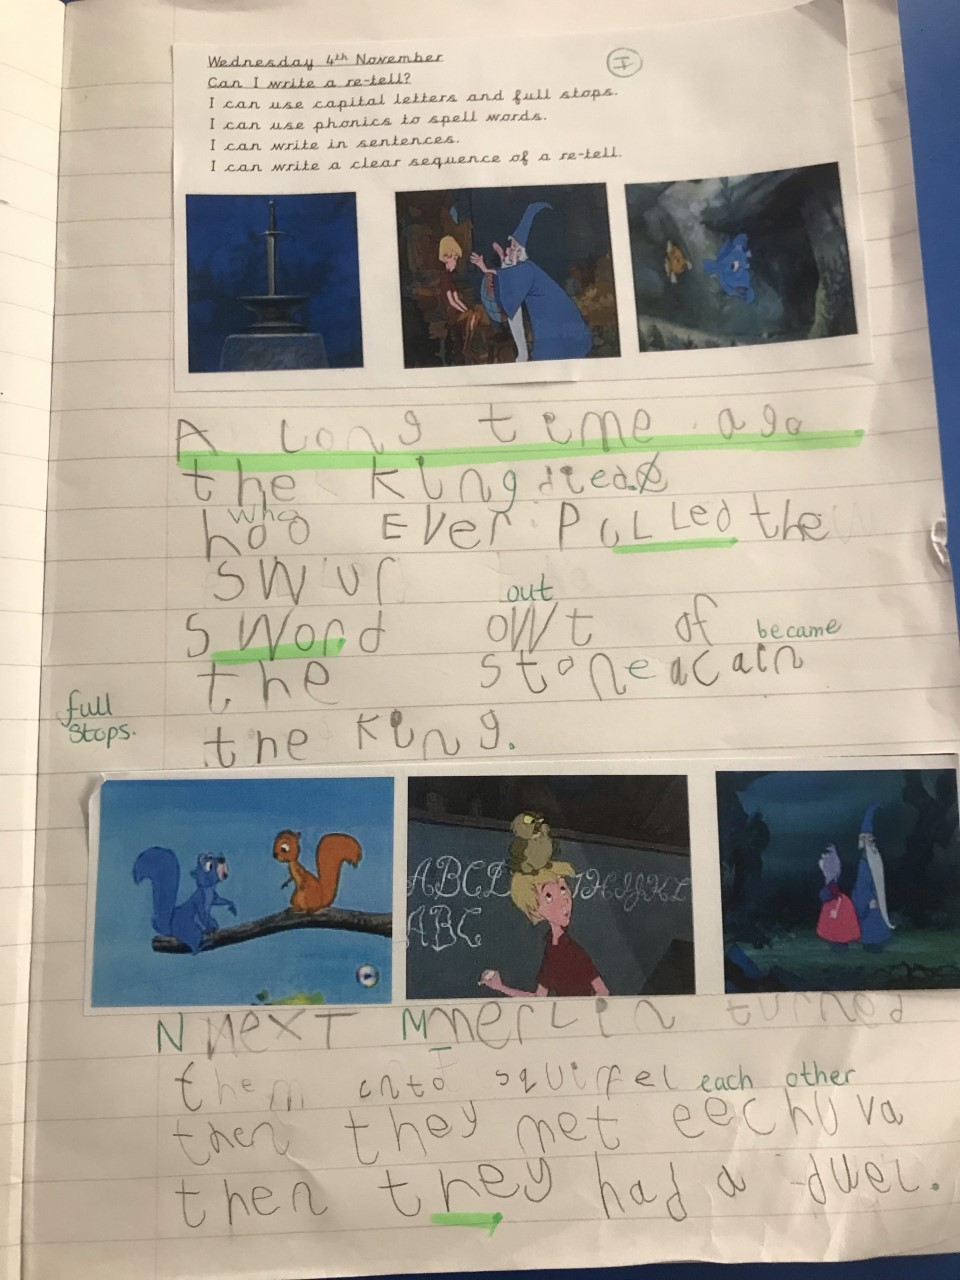 Wednesday 4th November
I
Can I write a re-tell?
I can use capital letters and full stops.
I can use phonics to spell words.
I can write in sentences.
I can write a clear sequence of a re-tell.
A Long time ago
the king died
who
hoo Ever PuLLed the
swur
out
sword owt of
became
the stone acain
full
stops.
the king.
ABCD HIJKL
ABC
N next M merLin turned
them into squirrel each other
then they met eechuva
then they had a duel.